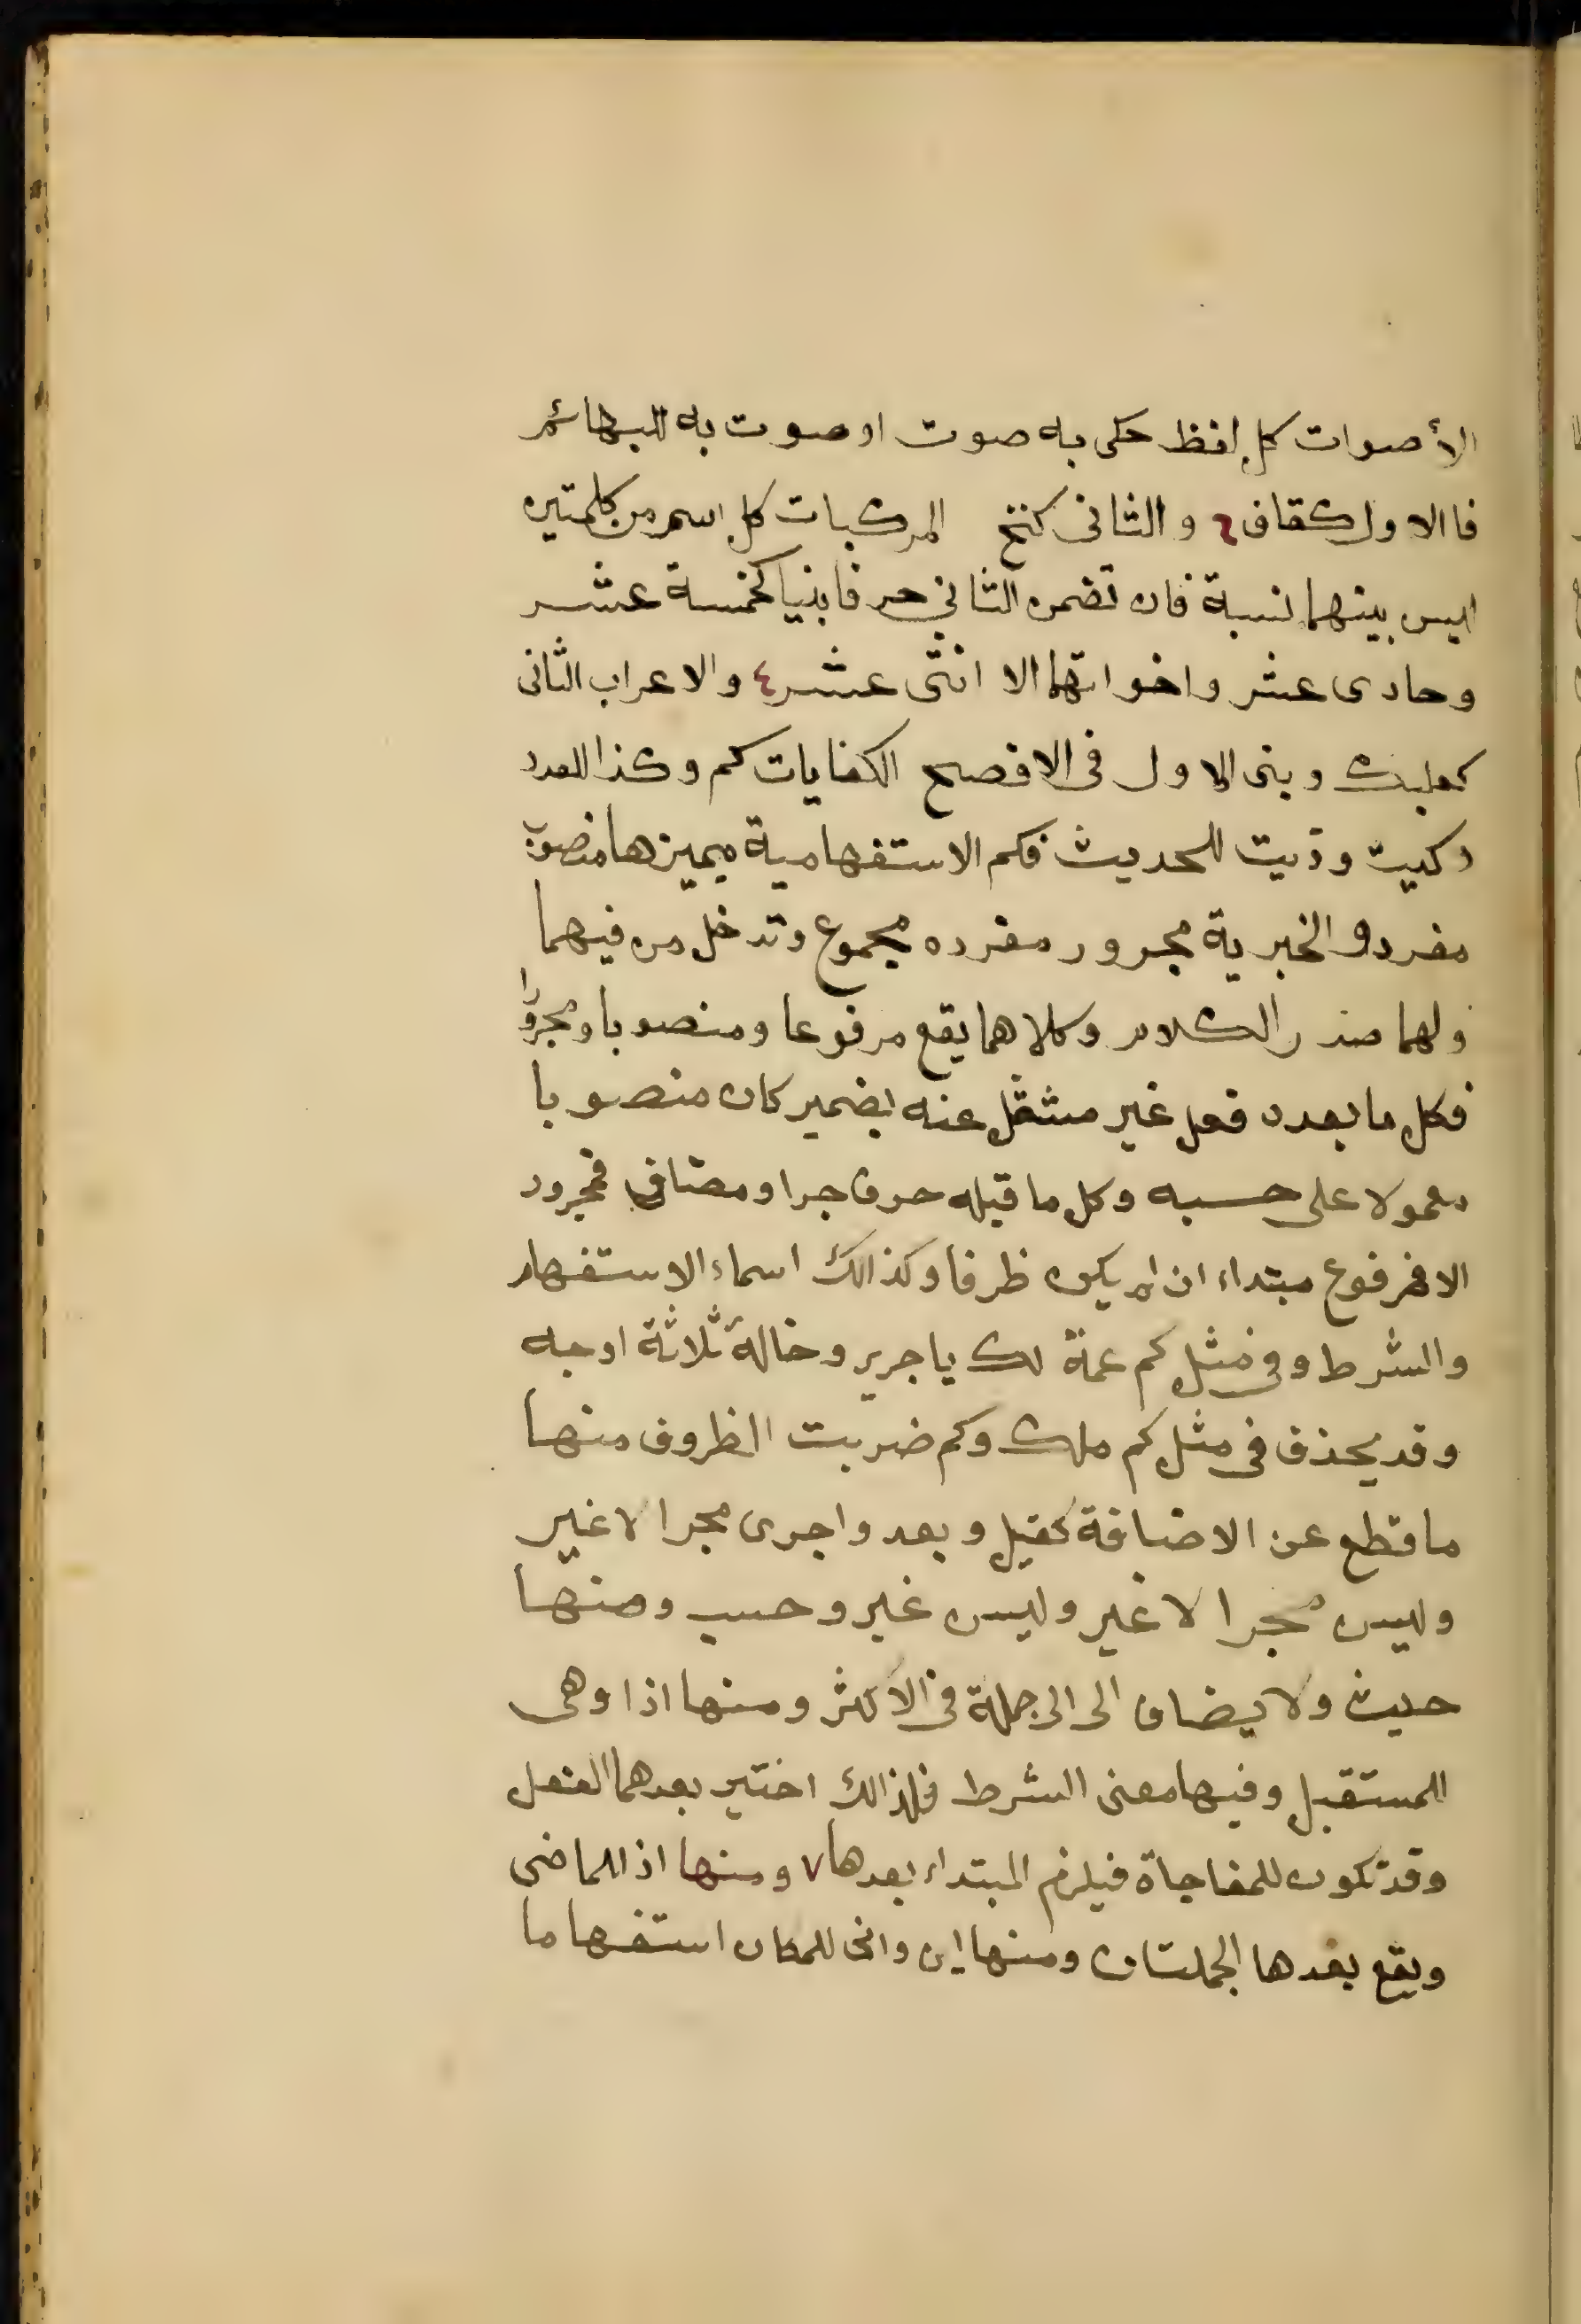 الأصوات كل لفظ حكى به صوت او صوت به للبهائم
فاالاول كقاف ٤ و الثانى كنخ المركبات كل اسم من كلمتين
ليس بينهما نسبة فان تضمن الثاني حرفا بنيا كخمسة عشر
وحادى عشر واخواتهما الا اثنى عشر ٤ والا عراب الثانى
كبعلبك وبنى الاول فى الافصح الكنايات كم وكذا للعدد
وكيت وذيت للحديث فكم الاستفهامية مميزها منصوب
مفرد والخبرية مجرور مفرده مجموع وتدخل من فيهما
ولهما صدر الكلام وكلاهما يقع مرفوعا ومنصوبا ومجرورا
فكل ما بعده فعل غير مشتغل عنه بضمير كان منصوبا
معمولا على حسبه وكل ما قبله حرف جر او مضاف فمجرور
الا فمرفوع مبتداء ان لم يكن ظرفا وكذالك اسماء الاستفهام
والشرط وفى مثل كم عمة لك يا جرير وخالة ثلاثة اوجه
وقد يحذف فى مثل كم ملك وكم ضربت الظروف منها
ما قطع عن الاضافة كقبل وبعد واجرى مجرا لا غير
وليس مجرا لا غير وليس غير وحسب ومنها
حيث ولا يضاف الى الى جملة فى الأكثر ومنها اذا وهى
للمستقبل وفيها معنى الشرط فلذالك اختير بعدهما الفعل
وقد تكون للمفاجاة فيلزم المبتداء بعدها ٧ ومنها اذ للماضى
ويقع بعدها الجملتان ومنها اين وانى للمكان استفهاما